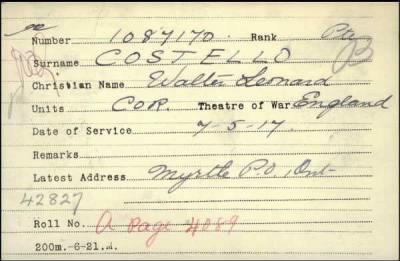 Number 1087170 Rank Pte
Surname COSTELLO
Christian Name Walter Leonard
Units C.O.R. Theatre of War England
Date of Service 7-5-17.
Remarks
Latest Address Myrtle P.O., Ont-
42827
Roll No. A Page 4089
200m.-6-21.M.